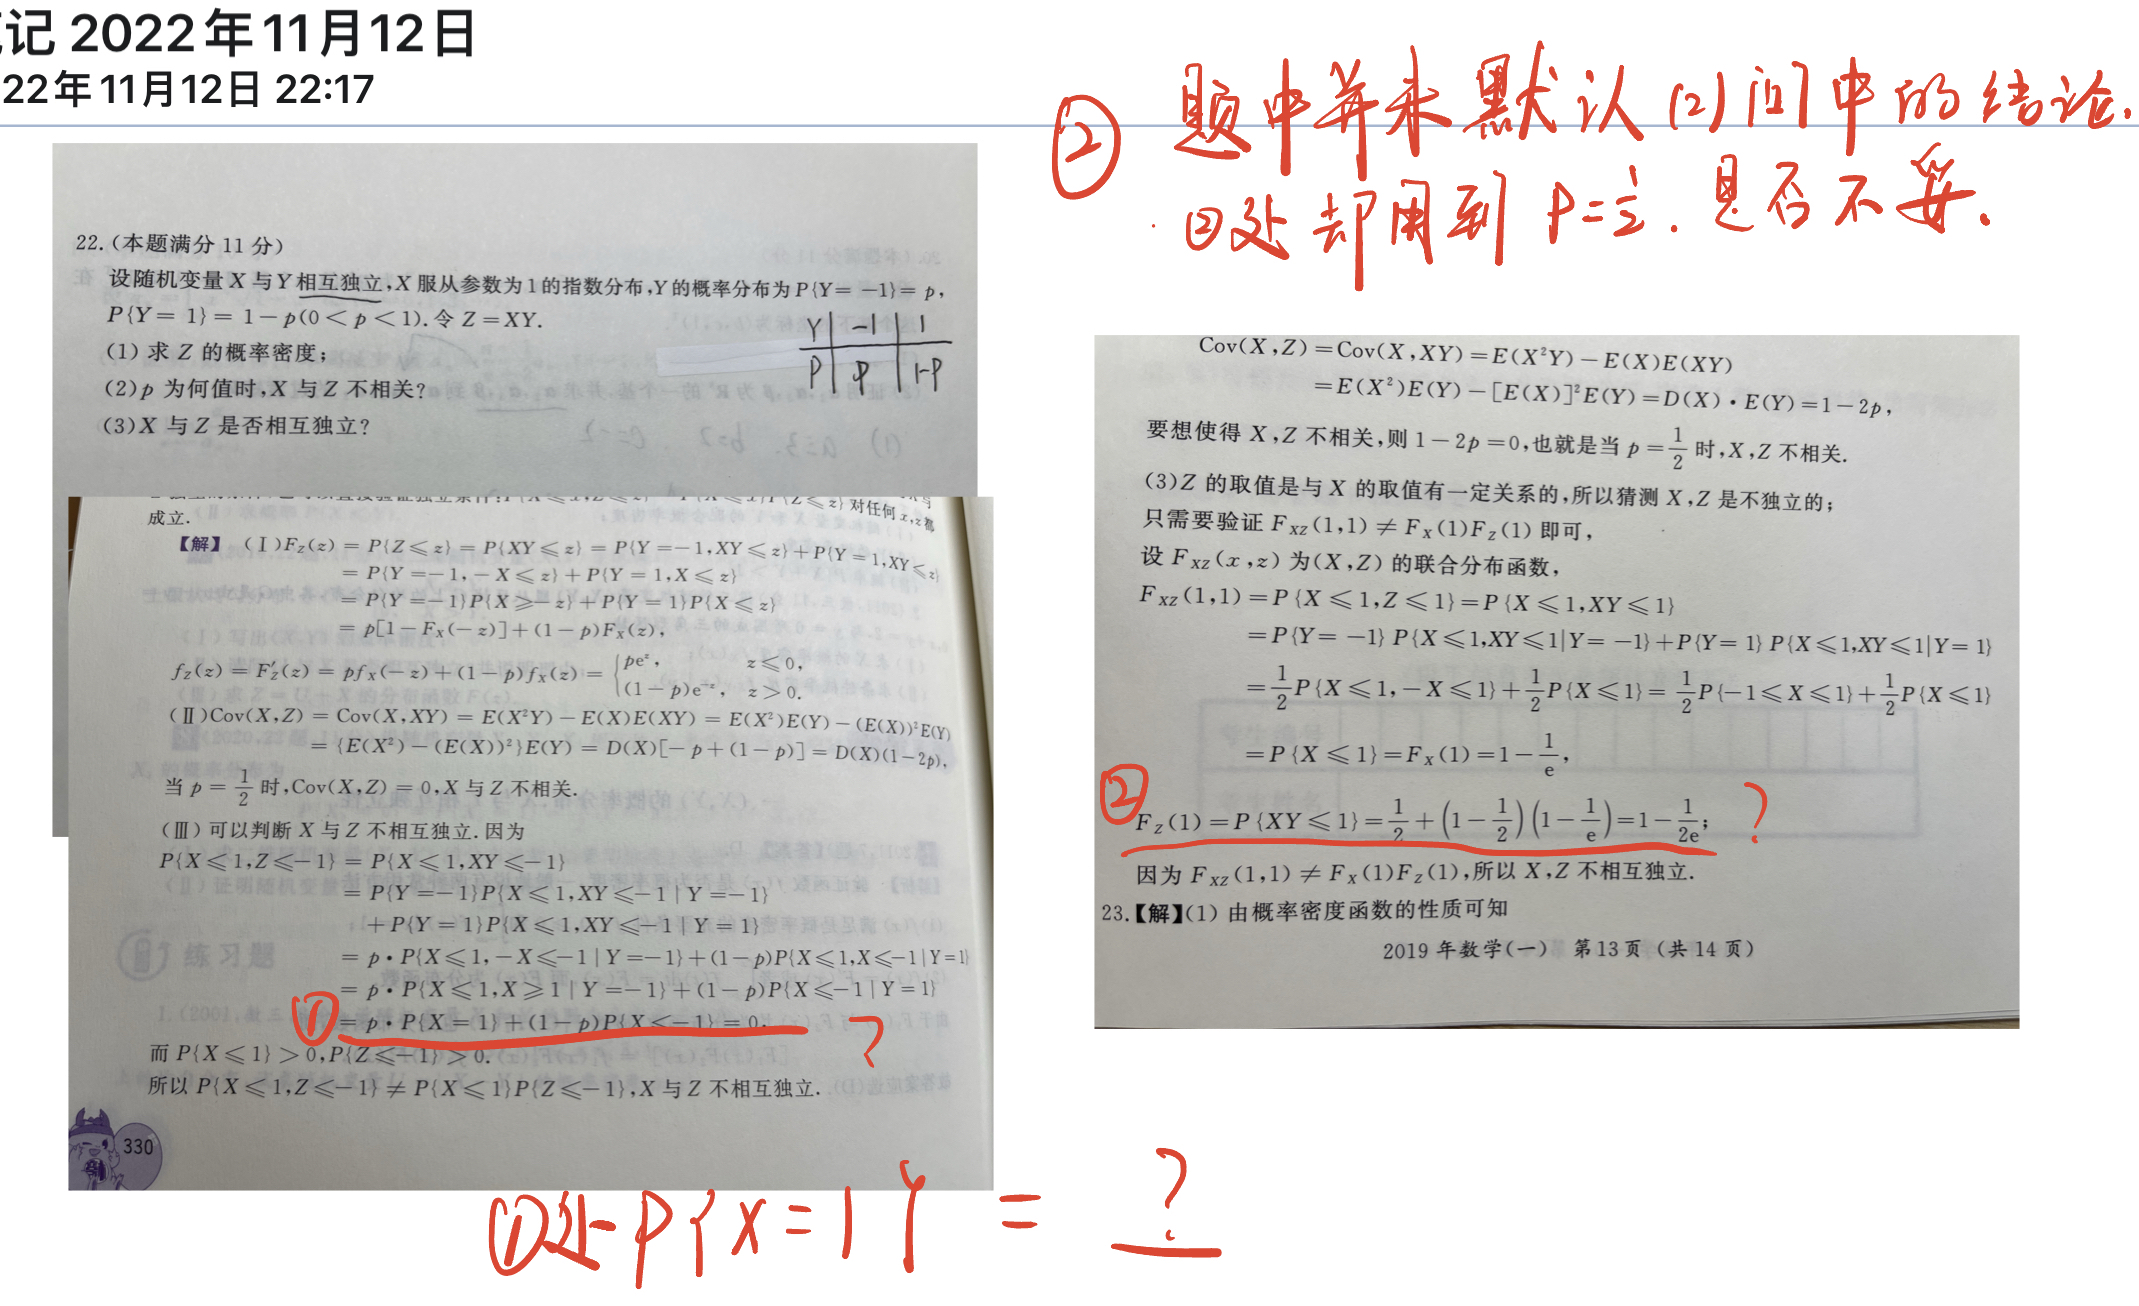 记 2022年11月12日
22年11月12日 22:17
② 题中并未默认(2)问中的结论.
②处却用到 P=1/2. 是否不妥.
22.(本题满分 11 分)
设随机变量 X 与 Y 相互独立,X 服从参数为 1 的指数分布,Y 的概率分布为 P{Y= −1}= p,
P{Y= 1}= 1−p(0<p<1).令 Z=XY.
(1) 求 Z 的概率密度;
(2) p 为何值时,X 与 Z 不相关?
(3) X 与 Z 是否相互独立?
Y | −1 | 1
P | P | 1−P
对任何 x,z 都
成立.
【解】 (Ⅰ)F_Z(z) = P{Z⩽z} = P{XY⩽z} = P{Y=−1,XY⩽z}+P{Y=1,XY⩽z}
= P{Y=−1,−X⩽z}+P{Y=1,X⩽z}
= P{Y=−1}P{X⩾−z}+P{Y=1}P{X⩽z}
= p[1−F_X(−z)]+(1−p)F_X(z),
f_Z(z) = F′_Z(z) = pf_X(−z)+(1−p)f_X(z) = { pe^z, z⩽0,
(1−p)e^{−z}, z>0.
(Ⅱ)Cov(X,Z) = Cov(X,XY) = E(X²Y)−E(X)E(XY) = E(X²)E(Y)−(E(X))²E(Y)
= {E(X²)−(E(X))²}E(Y) = D(X)[−p+(1−p)] = D(X)(1−2p),
当 p = 1/2 时,Cov(X,Z) = 0,X 与 Z 不相关.
(Ⅲ) 可以判断 X 与 Z 不相互独立.因为
P{X⩽1,Z⩽−1} = P{X⩽1,XY⩽−1}
= P{Y=−1}P{X⩽1,XY⩽−1|Y=−1}
+P{Y=1}P{X⩽1,XY⩽−1|Y=1}
= p·P{X⩽1,−X⩽−1|Y=−1}+(1−p)P{X⩽1,X⩽−1|Y=1}
= p·P{X⩽1,X⩾1|Y=−1}+(1−p)P{X⩽−1|Y=1}
① = p·P{X=1}+(1−p)P{X⩽−1} = 0. ?
而 P{X⩽1}>0,P{Z⩽−1}>0.
所以 P{X⩽1,Z⩽−1}≠P{X⩽1}P{Z⩽−1},X 与 Z 不相互独立.
练习题
330
Cov(X,Z)=Cov(X,XY)=E(X²Y)−E(X)E(XY)
=E(X²)E(Y)−[E(X)]²E(Y)=D(X)·E(Y)=1−2p,
要想使得 X,Z 不相关,则 1−2p=0,也就是当 p=1/2 时,X,Z 不相关.
(3)Z 的取值是与 X 的取值有一定关系的,所以猜测 X,Z 是不独立的;
只需要验证 F_XZ(1,1)≠F_X(1)F_Z(1) 即可,
设 F_XZ(x,z) 为(X,Z) 的联合分布函数,
F_XZ(1,1)=P{X⩽1,Z⩽1}=P{X⩽1,XY⩽1}
=P{Y=−1}P{X⩽1,XY⩽1|Y=−1}+P{Y=1}P{X⩽1,XY⩽1|Y=1}
=1/2P{X⩽1,−X⩽1}+1/2P{X⩽1}=1/2P{−1⩽X⩽1}+1/2P{X⩽1}
=P{X⩽1}=F_X(1)=1−1/e,
② F_Z(1)=P{XY⩽1}=1/2+(1−1/2)(1−1/e)=1−1/2e; ?
因为 F_XZ(1,1)≠F_X(1)F_Z(1),所以 X,Z 不相互独立.
23.【解】(1) 由概率密度函数的性质可知
2019 年数学(一) 第13页 (共14页)
①处 P{X=1} = ?